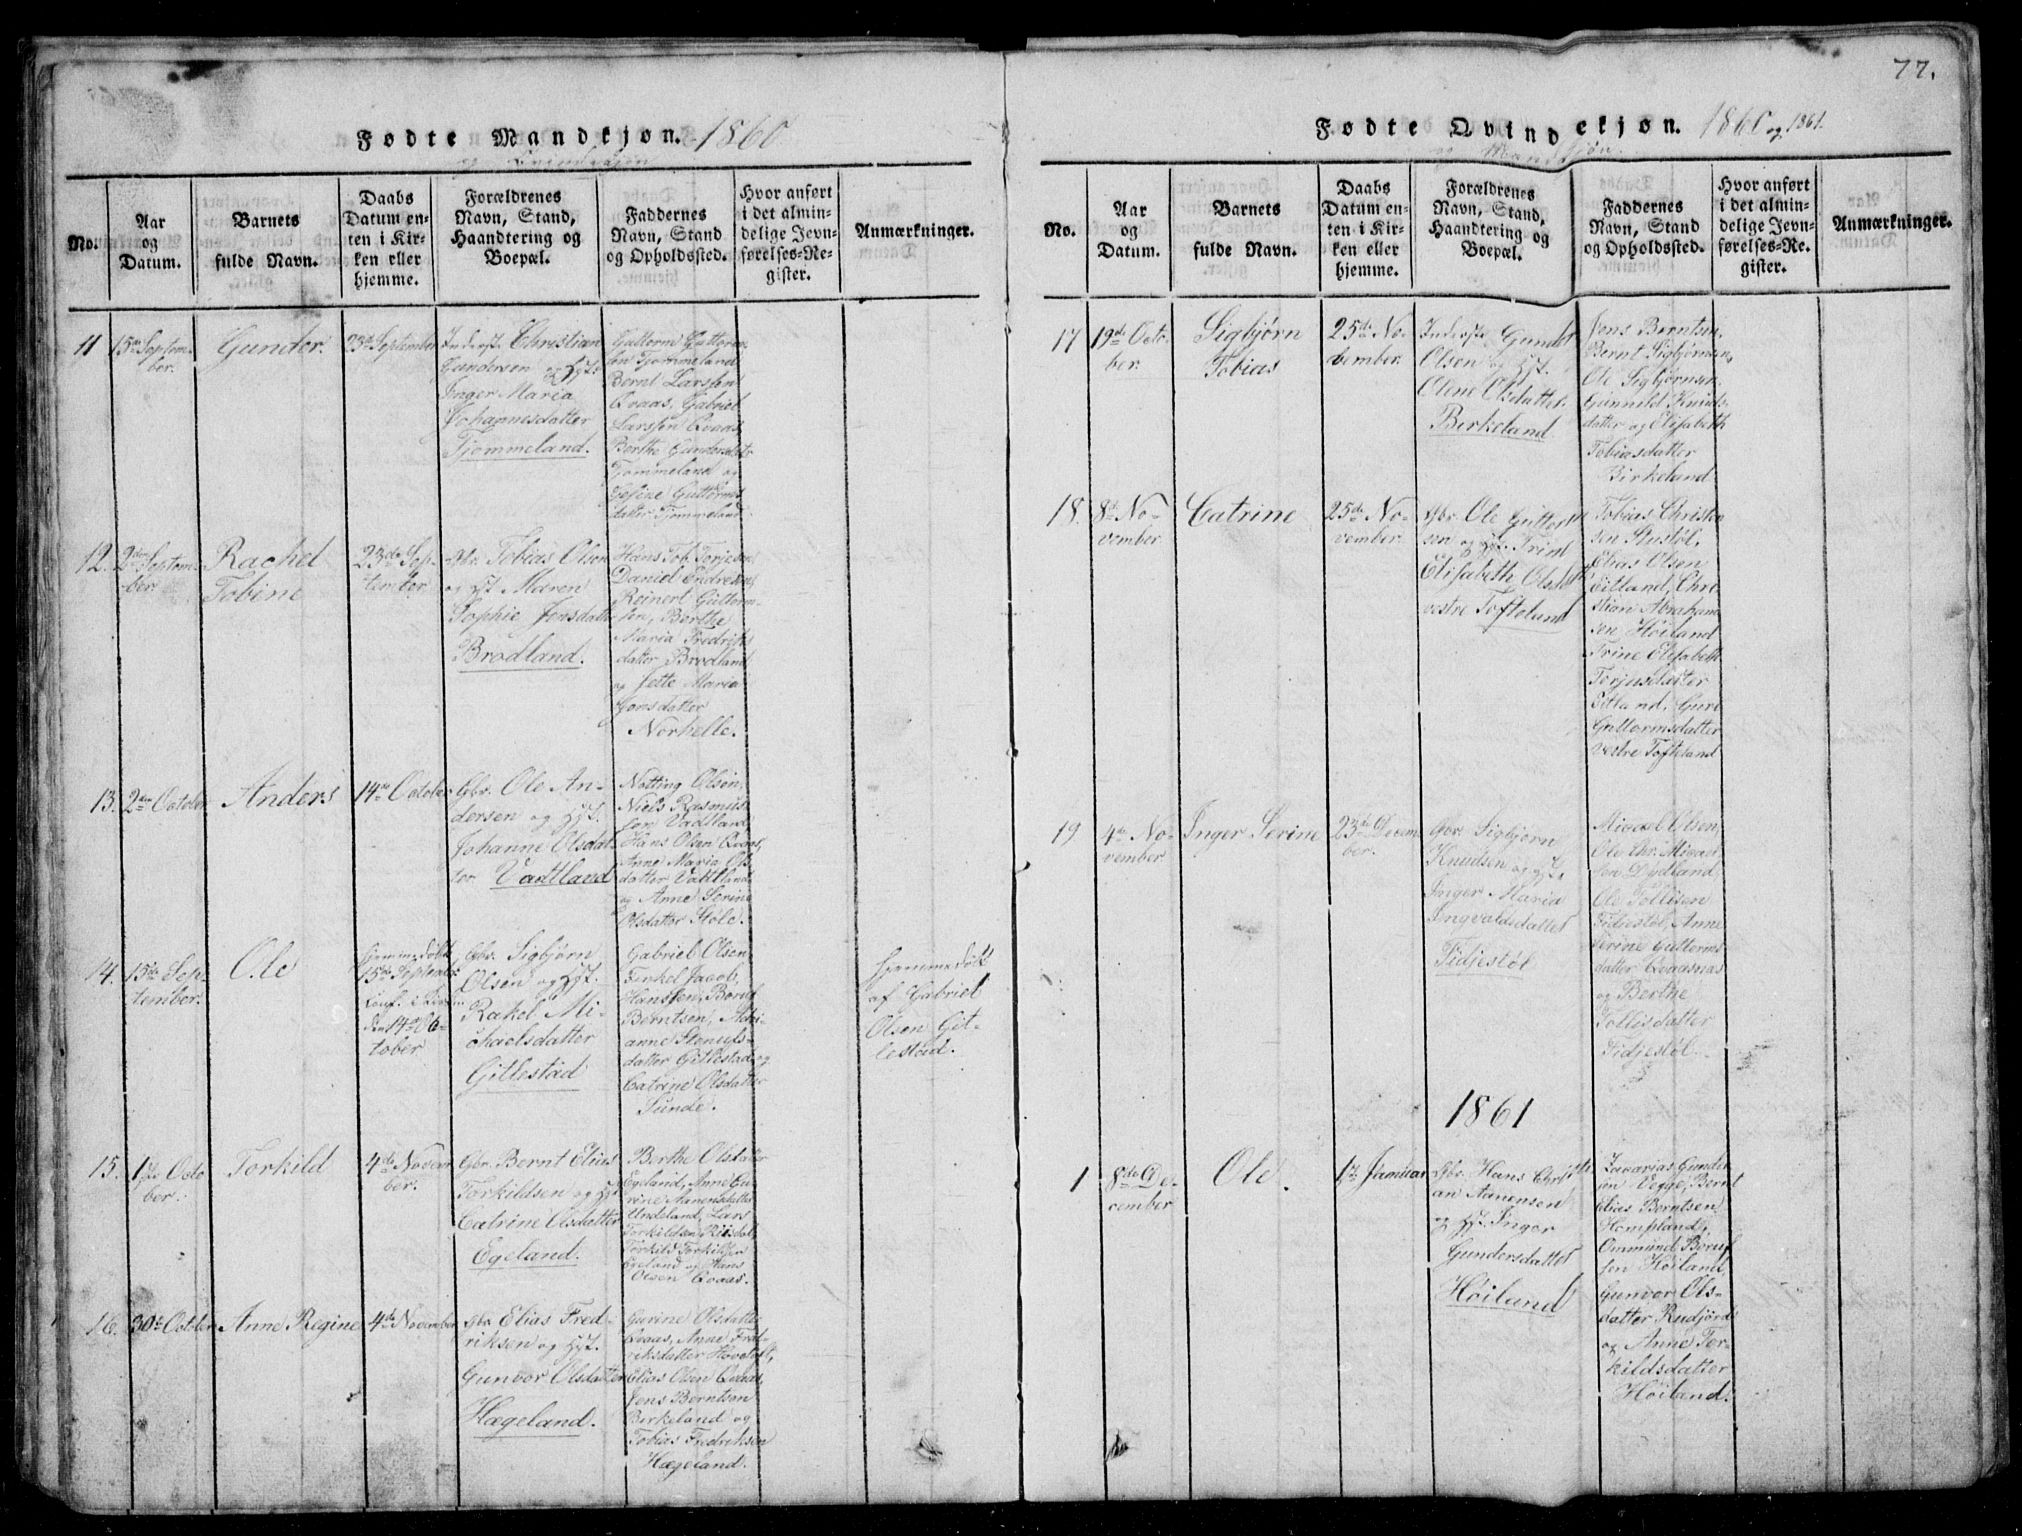 77.
Fødte Mandkjøn. 1860
og Qvindekjøn
No.
Aar
og
Datum.
Barnets
fulde Navn.
Daabs
Datum en-
ten i Kir-
ken eller
hjemme.
Forældrenes
Navn, Stand,
Haandtering og
Boepæl.
Faddernes
Navn, Stand
og Opholdssted.
Hvor anført
i det almin-
delige Jevn-
førelses-Re-
gister.
Anmærkninger.
11
15de Septem-
ber.
Gunder.
23de September
Inderst. Christian
Gundersen og Hst.
Inger Maria
Johannesdatter
Tjommeland.
Guttorm Guttorm-
sen Tjommeland
Bernt Larssen
Qvaas, Gabriel
Larssen Qvaas
Berthe Gundersdatr
Tjommeland og
Gesine Guttorms
datter Tjommeland.
12.
2den Septem-
ber.
Rachel
Tobine
23de Sep-
tember
Gbr. Tobias Olsen
og Hst Maren
Sophie Jensdatter
Brødland.
Hans Tob. Torjesen
Daniel Endresen
Reinert Guttorm-
sen, Berthe
Maria Fredriks
datter Brødland
og Jette Maria
Jonsdatter
Norhelle.
13.
2den October
Anders
14de October
Gbr. Ole An-
dersen og Hst.
Johanne Olsdat-
ter Vadtland
Notting Olsen,
Niels Rasmus-
sen Vadtland
Hans Olsen Qvaas,
Anne Maria Ols-
datter Vadtland
og Anne Serine
Olsdatter Støle.
14.
15de Sep-
tember.
Ole
Hjemmedøbt
15de September
Conf. i Kirken
den 14de Oc-
tober
Gbr. Sigbjørn
Olsen og Hst.
Rakel Mi-
chaelsdatter
Gitlestad
Gabriel Olsen
Terkel Jacob
Hanssen, Boruf
Berntsen, Adri-
anne Stenufs-
datter Gitlestad og
Catrine Olsdatter
Sunde.
Hjemmedøbt
af Gabriel
Olsen Git-
lestad.
15.
1ste Octo
ber.
Torkild
4de Novem
ber.
Gbr. Bernt Elias
Torkildsen og Hst
Catrine Olsdatter
Egeland.
Berthe Olsdatter
Egeland, Anne Gu-
rine Aanensdatter
Undeland, Lars
Torkildsen Risdal,
Torkild Torkildsen
Egeland og Hans
Olsen Qvaas.
16.
30te October
Anne Regine
4de November
Gbr Elias Fred-
riksen og Hst.
Gunvor Olsdatter
Hægeland.
Gurine Olsdatter
Qvaas, Anne Fred-
riksdatter Hovetoft,
Elias Olsen Qvaas,
Jens Berntsen
Birkeland og
Tobias Fredriksen
Hægeland.
Fødte Qvindekjøn. 1860 og 1861.
og Mandkjøn.
No.
Aar
og
Datum.
Barnets
fulde Navn.
Daabs
Datum en-
ten i Kir-
ken eller
hjemme.
Forældrenes
Navn, Stand,
Haandtering og
Boepæl.
Faddernes
Navn, Stand
og Opholdssted.
Hvor anført
i det almin-
delige Jevn-
førelses-Re-
gister.
Anmærkninger.
17
19de Octo-
ber.
Sigbjørn
Tobias
25de No-
vember.
Inderste Gundr
Olsen og Hst.
Olene Olsdatter.
Birkeland
Jens Berntsen,
Bernt Sigbjørnsen,
Ole Sigbjørnsen
Gunnild Knuds-
datter og Elisabeth
Tobiasdatter
Birkeland
18.
8de No-
vember
Catrine
25de No-
vember.
Gbr Ole Guttorm
sen og Hst. Trine
Elisabeth Olsdtr
vestre Tofteland
Tobias Christen
sen Stustøl,
Elias Olsen
Eitland, Chri-
stian Abraham
sen Høiland
Trine Elisabeth
Terjusdatter
Eitland, Guri
Guttormsdatter
vestre Tofteland
19
4de No-
vember
Inger Serine
23de Decem
ber.
Gbr. Sigbjørn
Knudsen og Hst,
Inger Maria
Ingvaldsdatter
Fidjestøl
Micael Olsen,
Ole Chr. Micael
sen Dydland
Ole Tollisen
Fidjestøl, Anne
Serine Guttorms
datter Qvaasnas
og Berthe
Tollisdatter
Fidjestøl.
1861
1
8de De-
cember
Ole.
1ste Januar
Gbr. Hans Christi
an Aanensen
og Hst. Inger
Gundersdatter
Høiland
Zacarias Gunder
sen Vegge, Bernt
Elias Berntsen
Hompland,
Ommund Boruf
sen Høiland,
Gunvor Ols-
datter Rudjord
og Anne Ter-
kildsdatter
Høiland.